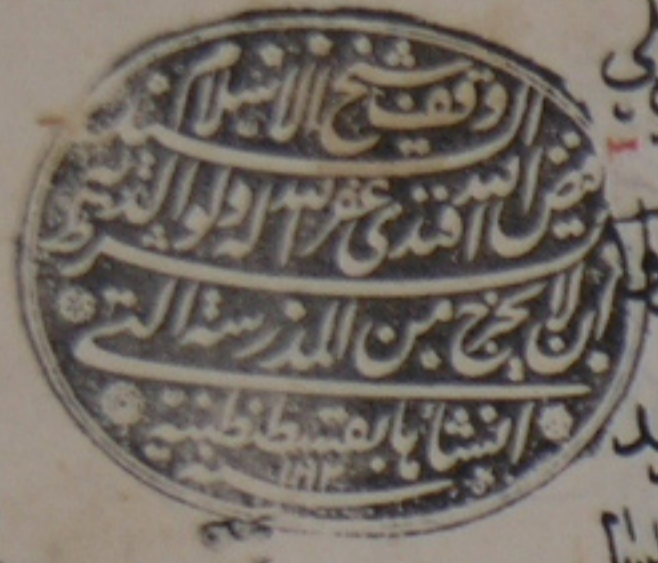 وقف شيخ الاسلام السيد
فيض الله افندى غفر الله له ولوالديه بشرط
ان لا يخرج من المدرسة التى
انشأها بقسطنطينية
سنة